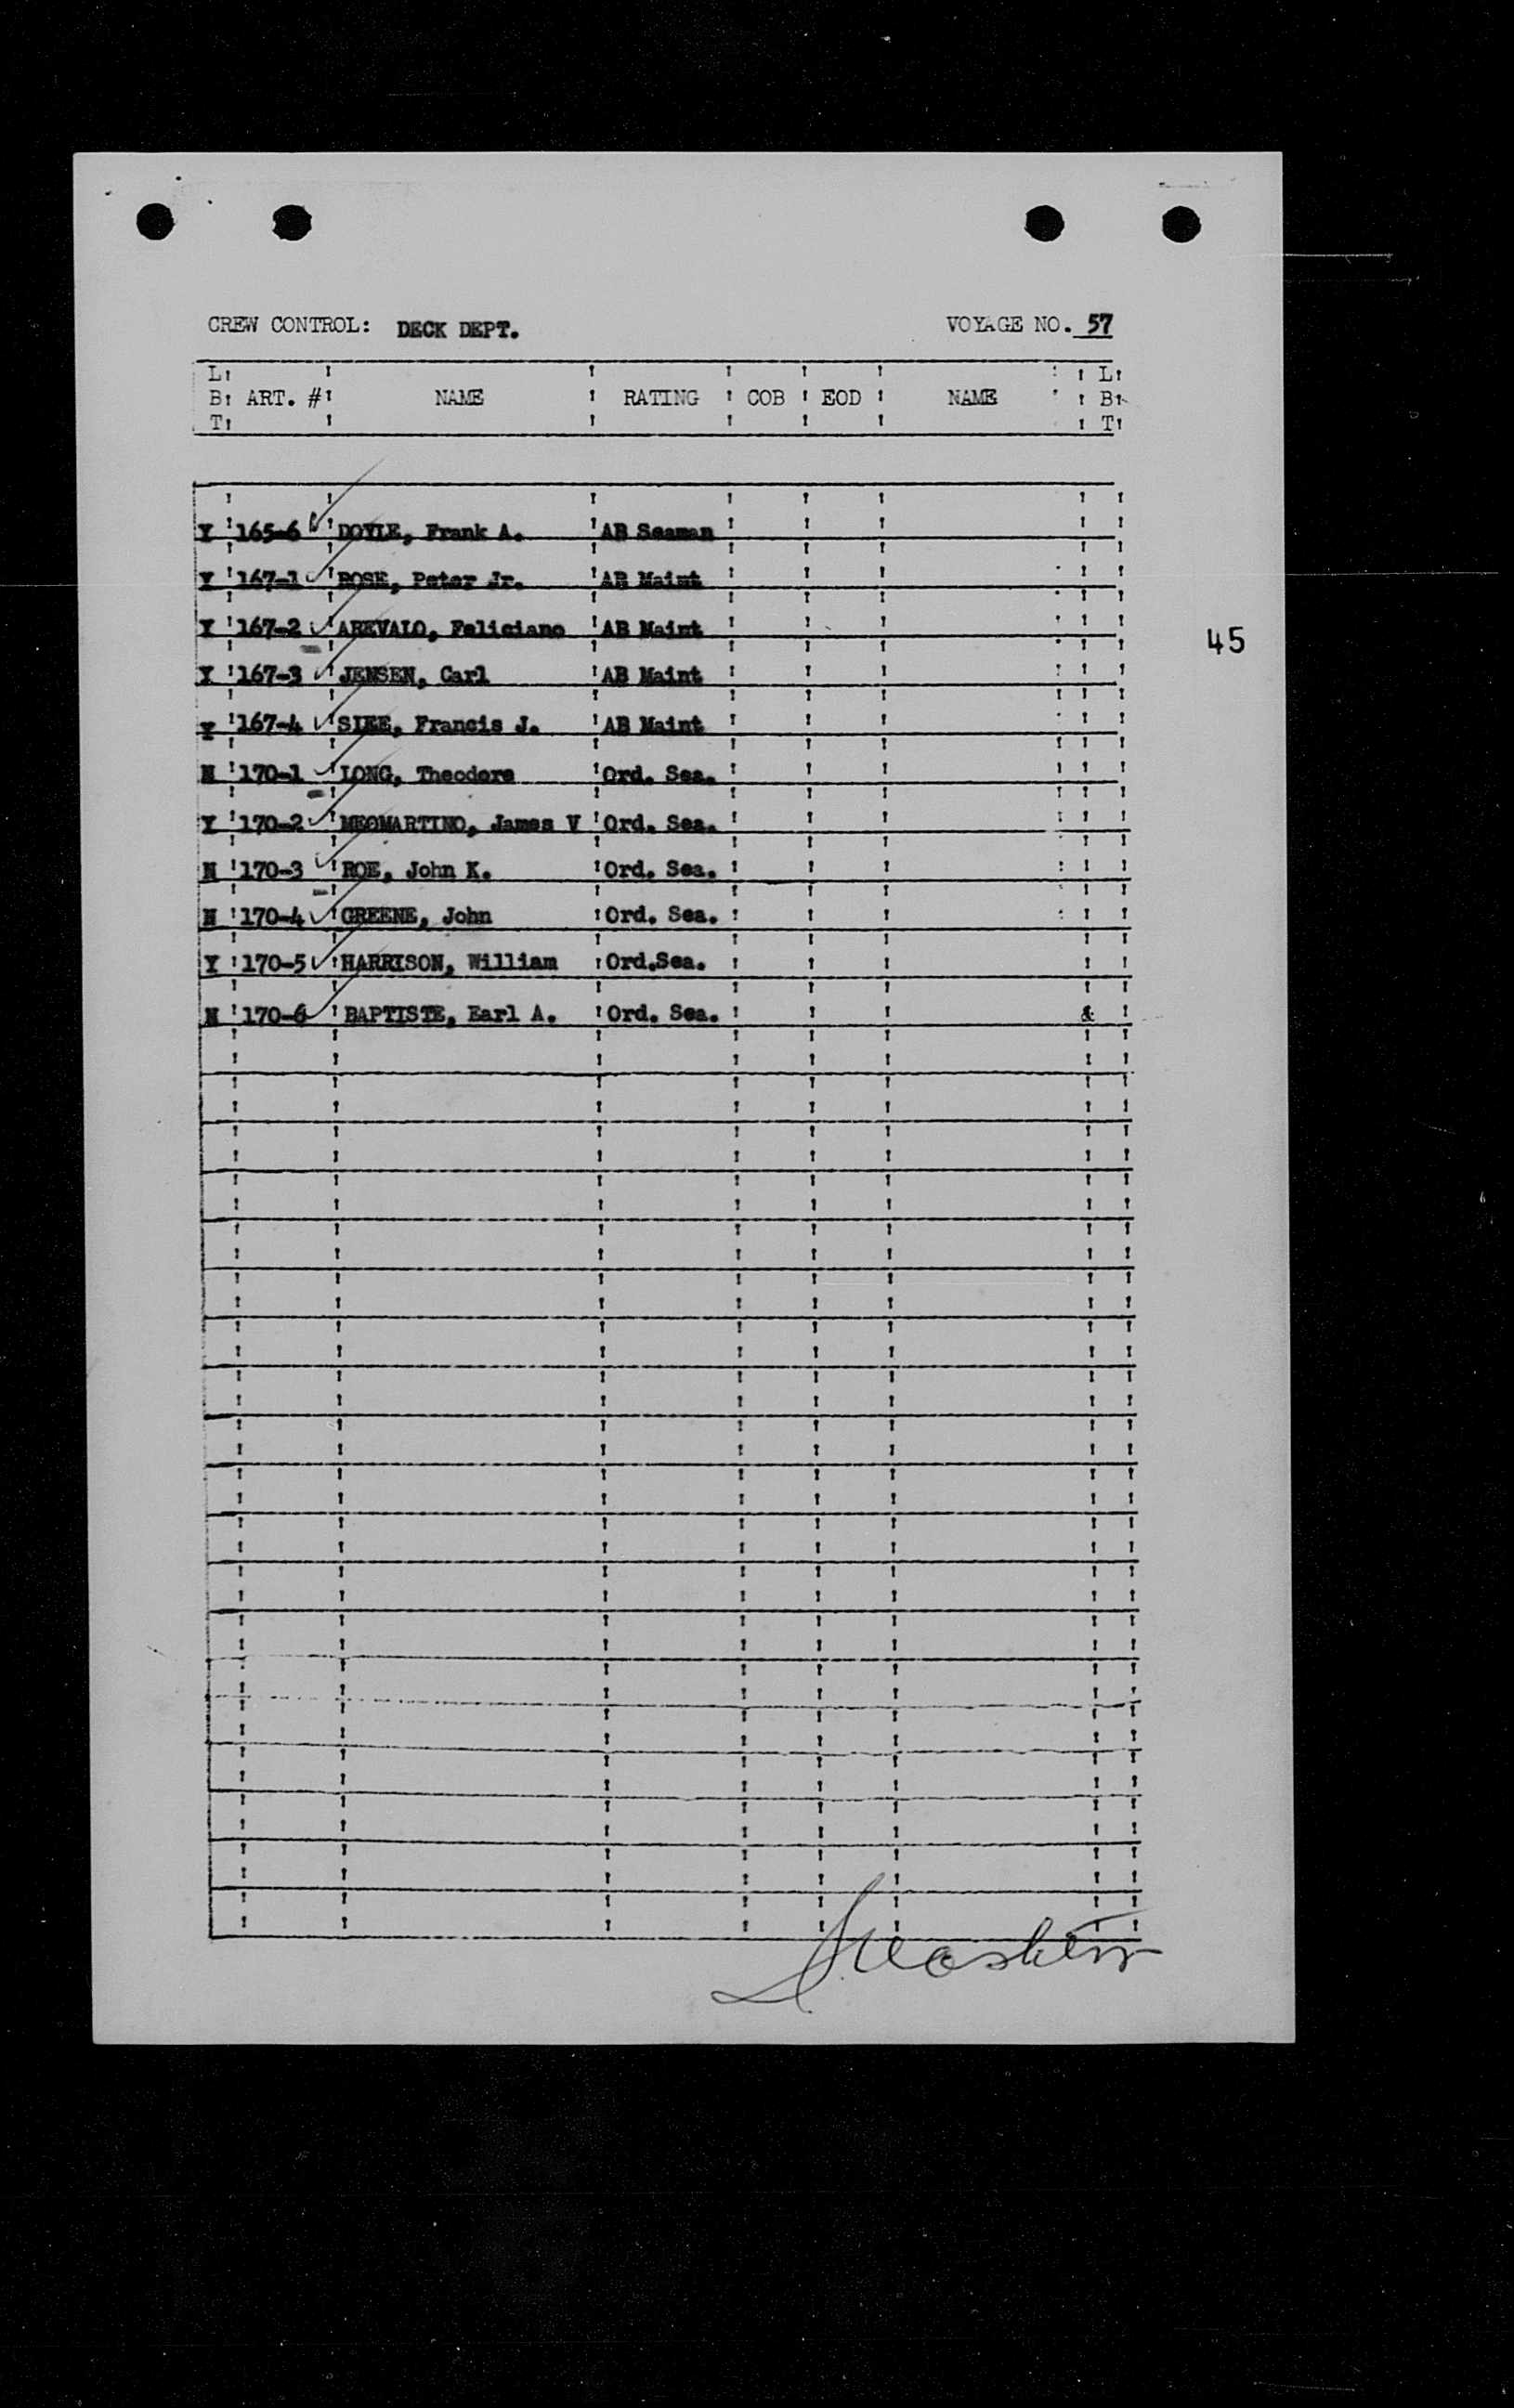 CREW CONTROL: DECK DEPT. VOYAGE NO. 57
L
B ART. # NAME RATING COB EOD NAME B
T
L
T
Y 165-6 DOYLE, Frank A. AB Seaman
Y 167-1 ROSE, Peter Jr. AB Maint
Y 167-2 AREVALO, Feliciano AB Maint
45
Y 167-3 JENSEN, Carl AB Maint
Y 167-4 SIEE, Francis J. AB Maint
N 170-1 LONG, Theodore Ord. Sea.
Y 170-2 MEOMARTINO, James V Ord. Sea.
N 170-3 ROE, John K. Ord. Sea.
N 170-4 GREENE, John Ord. Sea.
Y 170-5 HARRISON, William Ord.Sea.
N 170-6 BAPTISTE, Earl A. Ord. Sea. &